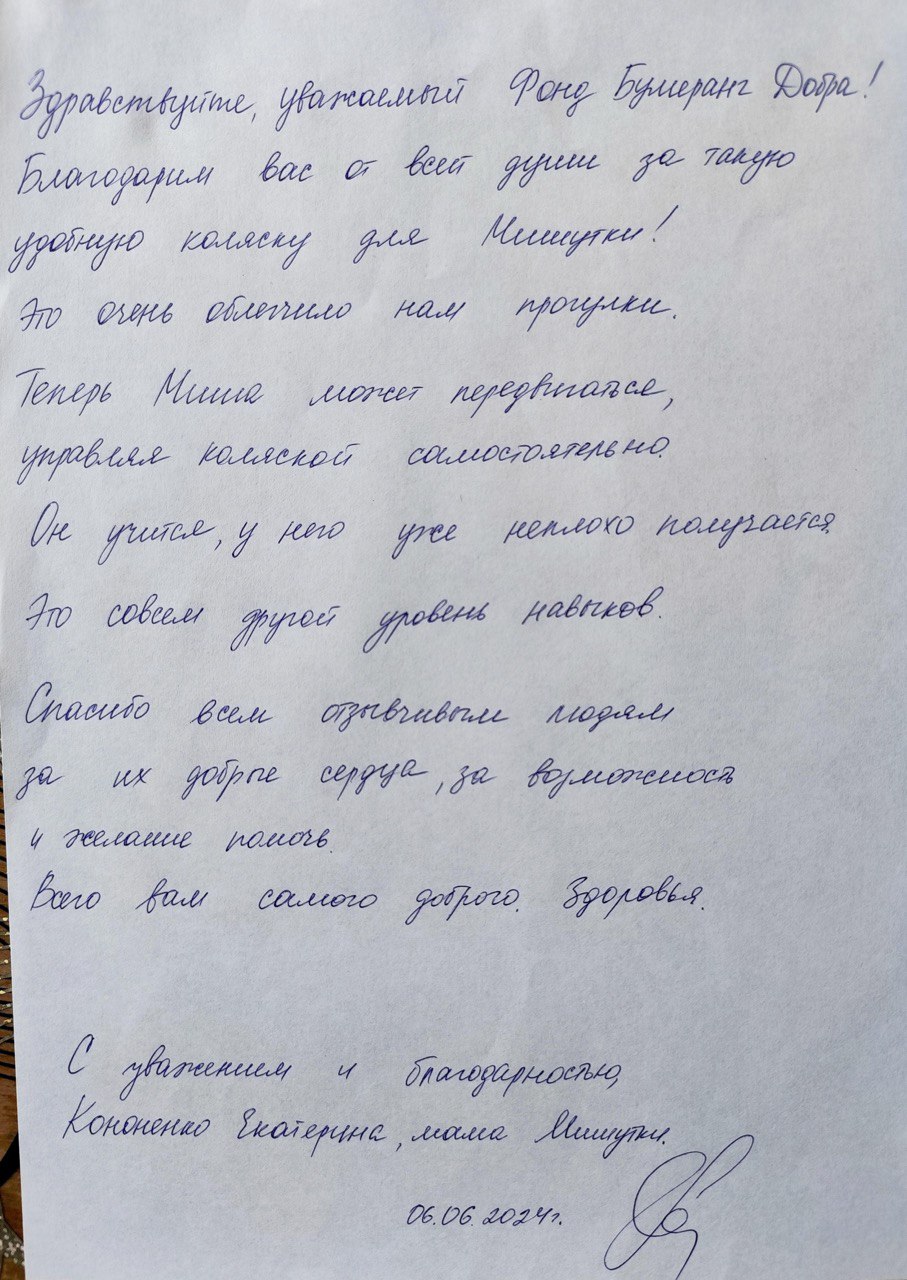 Здравствуйте, уважаемый Фонд Бумеранг Добра!
Благодарим вас от всей души за такую
удобную коляску для Мишутки!
Это очень облегчило нам прогулки.
Теперь Миша может передвигаться,
управляя коляской самостоятельно.
Он учится, у него уже неплохо получается.
Это совсем другой уровень навыков.
Спасибо всем отзывчивым людям
за их добрые сердца, за возможность
и желание помочь.
Всего вам самого доброго. Здоровья.
С уважением и благодарностью,
Кононенко Екатерина, мама Мишутки.
06.06.2024г.